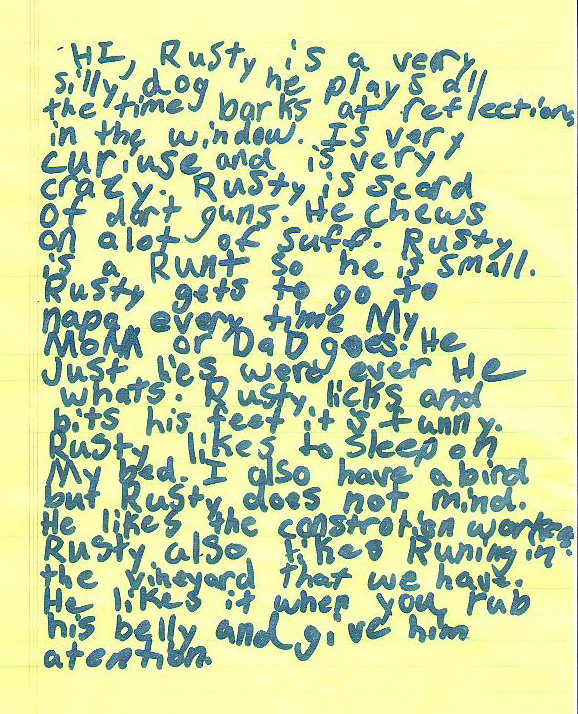 HI, Rusty is a very
silly dog he plays all
the time barks at reflections
in the window. Is very
curiuse and is very
crazy. Rusty is scard
of dart guns. He chews
on alot of suff. Rusty
is a Runt so he is small.
Rusty gets to go to
napa every time My
MoM or DaD goes. He
Just lies were ever He
whats. Rusty licks and
bits his feet it's funny.
Rusty likes to sleep on
My bed. I also have a bird
but Rusty does not mind.
He likes the constrotion workers
Rusty also likes Runing in
the vineyard that we have.
He likes it when you rub
his belly and give him
atention.